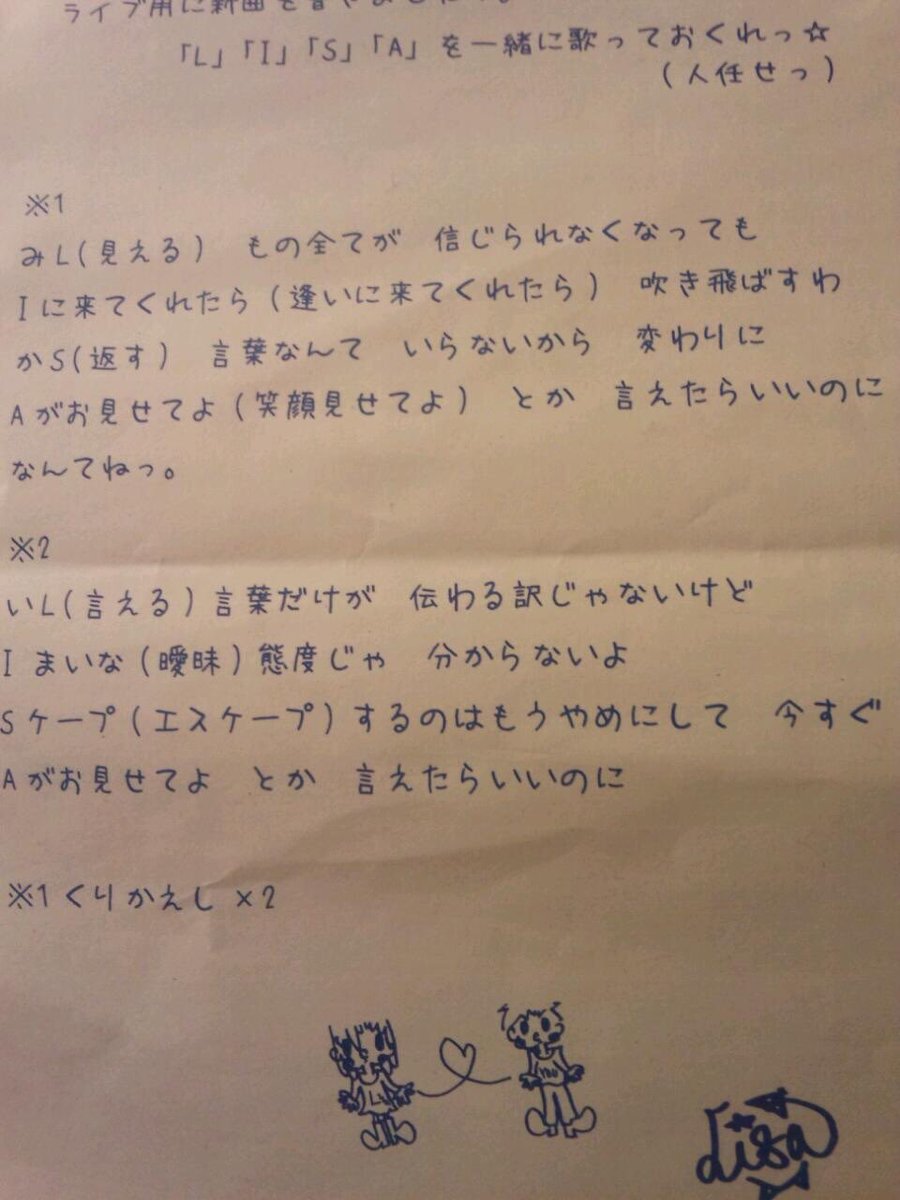 ライブ用に新曲を書やしました。
「L」「I」「S」「A」を一緒に歌っておくれっ☆
(人任せっ)
※1
みL(見える) もの全てが 信じられなくなっても
Iに来てくれたら(逢いに来てくれたら) 吹き飛ばすわ
かS(返す) 言葉なんて いらないから 変わりに
Aがお見せてよ(笑顔見せてよ) とか 言えたらいいのに
なんてねっ。
※2
いL(言える)言葉だけが 伝わる訳じゃないけど
Iまいな(曖昧)態度じゃ 分からないよ
Sケープ(エスケープ)するのはもうやめにして 今すぐ
Aがお見せてよ とか 言えたらいいのに
※1くりかえし×2
LiSA